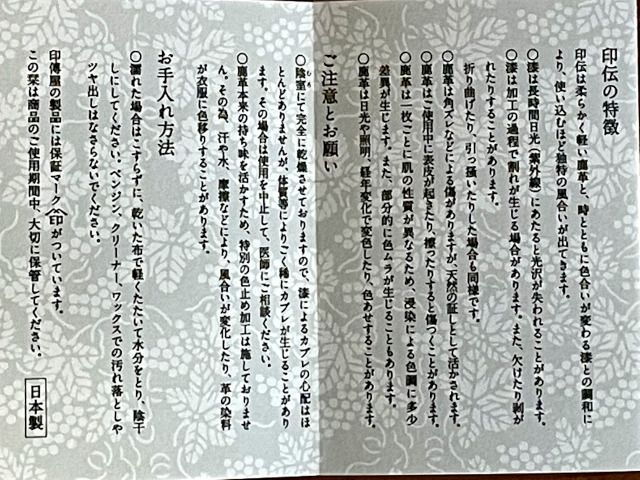 印伝の特徴
印伝は柔らかく軽い鹿革と、時とともに色合いが変わる漆との調和に
より、使い込むほど独特の風合いが出てきます。
○漆は長時間日光(紫外線)にあたると光沢が失われることがあります。
○漆は加工の過程で割れが生じる場合があります。また、欠けたり剥が
れたりすることがあります。
折り曲げたり、引っ掻いたりした場合も同様です。
○鹿革は角ズレなどによる傷がありますが、天然の証しとして活かされます。
○鹿革はご使用中に表皮が起きたり、擦ったりすると傷つくことがあります。
○鹿革は一枚ごとに肌の性質が異なるため、浸染による色調に多少
差異が生じます。また、部分的に色ムラが生じることもあります。
○鹿革は日光や照明、経年変化で変色したり、色あせすることがあります。
ご注意とお願い
○陰室にて完全に乾燥させておりますので、漆によるカブレの心配はほ
とんどありませんが、体質等によりごく稀にカブレが生じることがあり
ます。その場合は使用を中止して、医師にご相談ください。
○鹿革本来の持ち味を活かすため、特別の色止め加工は施しておりませ
ん。その為、汗や水、摩擦などにより、風合いが変化したり、革の染料
が衣服に色移りすることがあります。
お手入れ方法
○濡れた場合はこすらずに、乾いた布で軽くたたいて水分をとり、陰干
しにしてください。ベンジン、クリーナー、ワックスでの汚れ落としや
ツヤ出しはなさらないでください。
印傳屋の製品には保証マーク印がついています。
この栞は商品のご使用期間中、大切に保管してください。
日本製